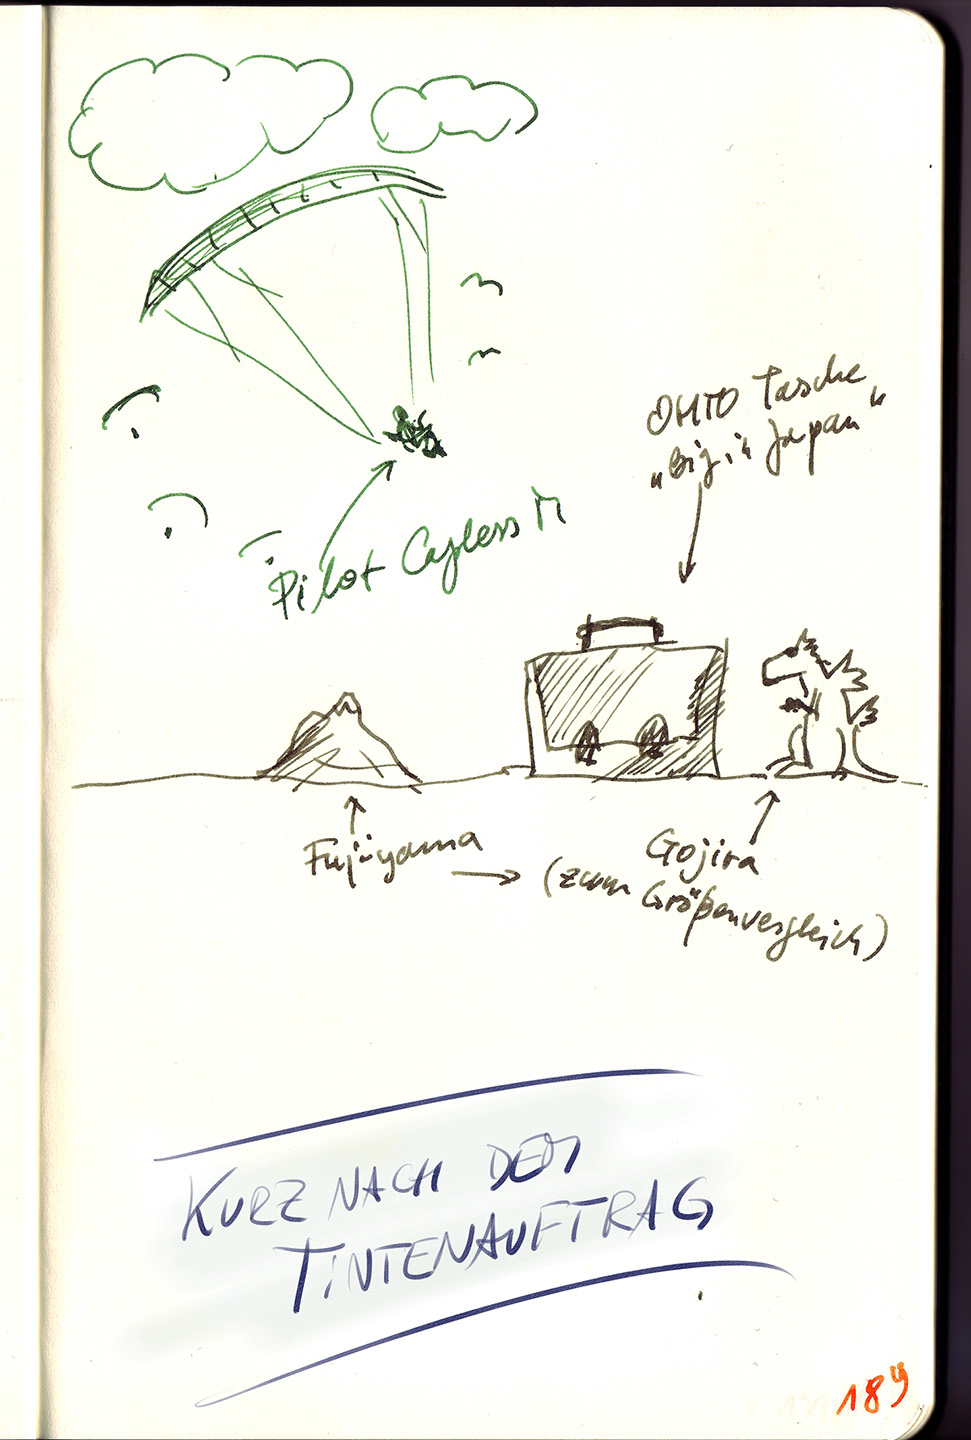 OHTO Tasche
„Big in Japan“
Pilot Capless M
Fuji-yama
Gojira
→ (zum Größenvergleich)
KURZ NACH DEM
TINTENAUFTRAG
189